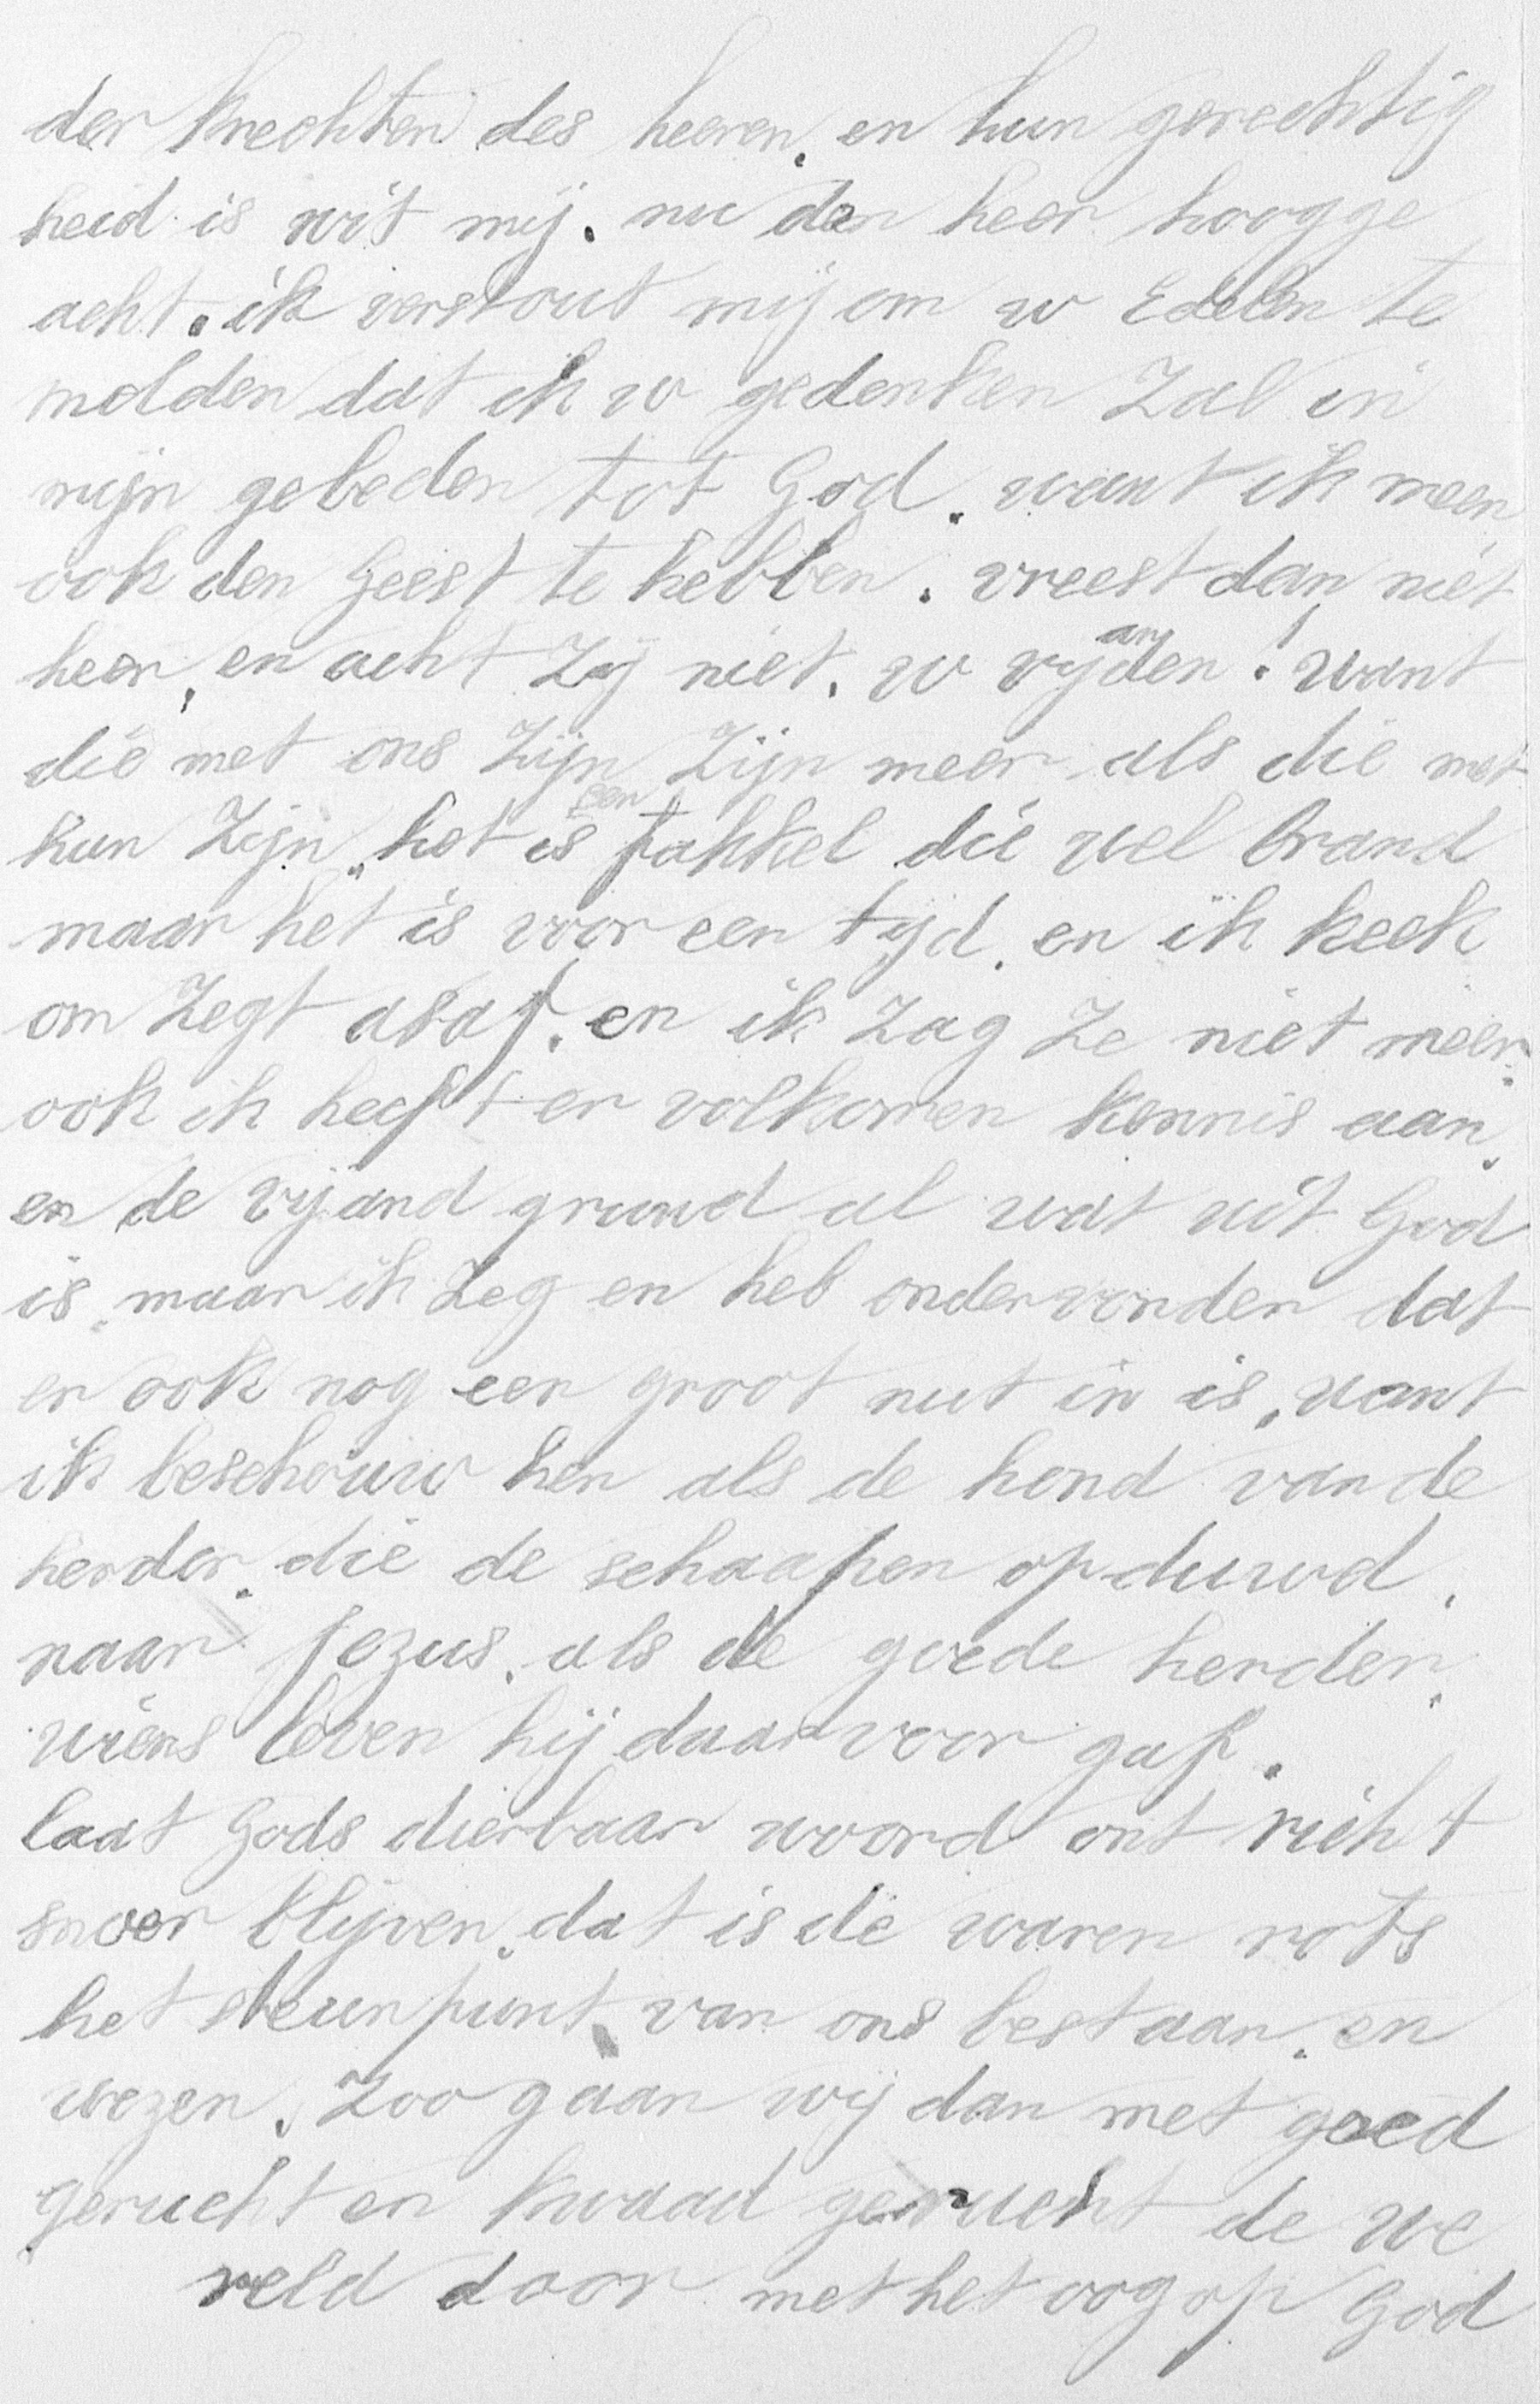 der knechten des heeren. en hun gerechtig
heid is uit mij. nu den heer hoogge
acht. ik verstout mij om u Edelen te
melden dat ik u gedenken Zal in
mijn gebeden tot God. want ik meen
ook den Geest te hebben. vreest dan niet
heer, en acht Zij niet. u vijanden! want
die met ons Zijn Zijn meer als die met
hun Zijn. het is een fakkel die wel brand
maar het is voor een tijd. en ik keek
om Zegt asaf. en ik Zag Ze niet meer.
ook ik heeft er volkomen kennis aan.
en de vijand gruwd al wat uit God
is. maar ik Zeg en heb ondervonden dat
er ook nog een groot nut in is. want
ik beschouw hen als de hond van de
herder. die de schaapen op duwd.
naar Jezus. als de goede herder.
wiens leven hij daar voor gaf.
laat Gods dierbaar woord ont richt
snoer blijven. dat is de waren rots
het steunpunt van ons bestaan. en
wezen. Zoo gaan wij dan met goed
gerucht en kwaad gerucht de we
reld door met het oog op God